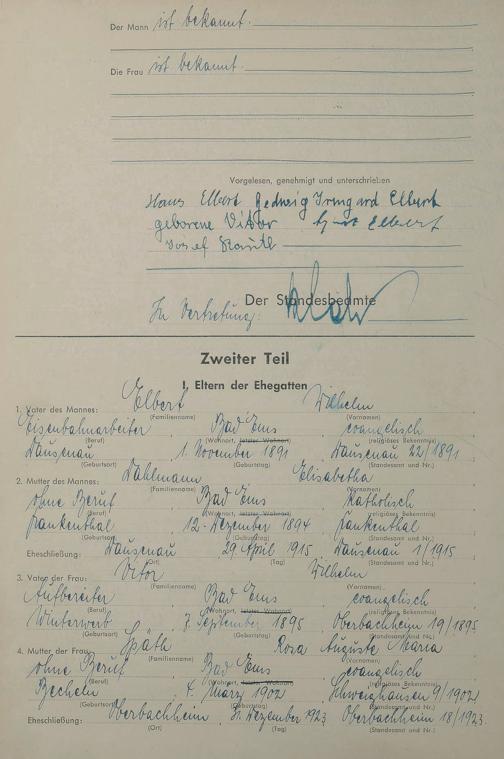 Der Mann ist bekannt.
Die Frau ist bekannt.
Vorgelesen, genehmigt und unterschrieben
Hans Elbert Hedwig Irmgard Elbert
geborene Vitor Elbert
Josef
Der Standesbeamte
In Vertretung:
Zweiter Teil
I. Eltern der Ehegatten
1. Vater des Mannes: Elbert Wilhelm
(Familienname) (Vornamen)
Eisenbahnarbeiter, Bad Ems, evangelisch
(Beruf) (Wohnort, letzter Wohnort) (religiöses Bekenntnis)
Dausenau, 1. November 1891 Dausenau 22/1891
(Geburtsort) (Geburtstag) (Standesamt und Nr.)
2. Mutter des Mannes: Dahlmann Elisabetha
(Familienname) (Vornamen)
ohne Beruf, Bad Ems, katholisch
(Beruf) (Wohnort, letzter Wohnort) (religiöses Bekenntnis)
Frankenthal, 12. Dezember 1894 Frankenthal
(Geburtsort) (Geburtstag) (Standesamt und Nr.)
Eheschließung: Dausenau, 29. April 1915, Dausenau 1/1915
(Ort) (Tag) (Standesamt und Nr.)
3. Vater der Frau: Vitor Wilhelm
(Familienname) (Vornamen)
Aufbereiter, Bad Ems, evangelisch
(Beruf) (Wohnort, letzter Wohnort) (religiöses Bekenntnis)
Winterwerb, 7. September 1895 Oberbachheim 19/1895
(Geburtsort) (Geburtstag) (Standesamt und Nr.)
4. Mutter der Frau: Späth Rosa Auguste Maria
(Familienname) (Vornamen)
ohne Beruf, Bad Ems, evangelisch
(Beruf) (Wohnort, letzter Wohnort) (religiöses Bekenntnis)
Becheln, 4. März 1902 Schweighausen 9/1902
(Geburtsort) (Geburtstag) (Standesamt und Nr.)
Eheschließung: Oberbachheim, 31. Dezember 1923, Oberbachheim 18/1923.
(Ort) (Tag) (Standesamt und Nr.)